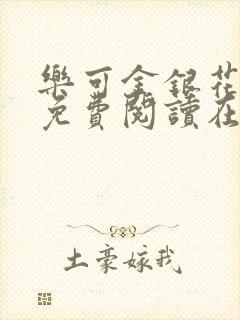 樂可金銀花
免費閱讀在
土豪嫁我